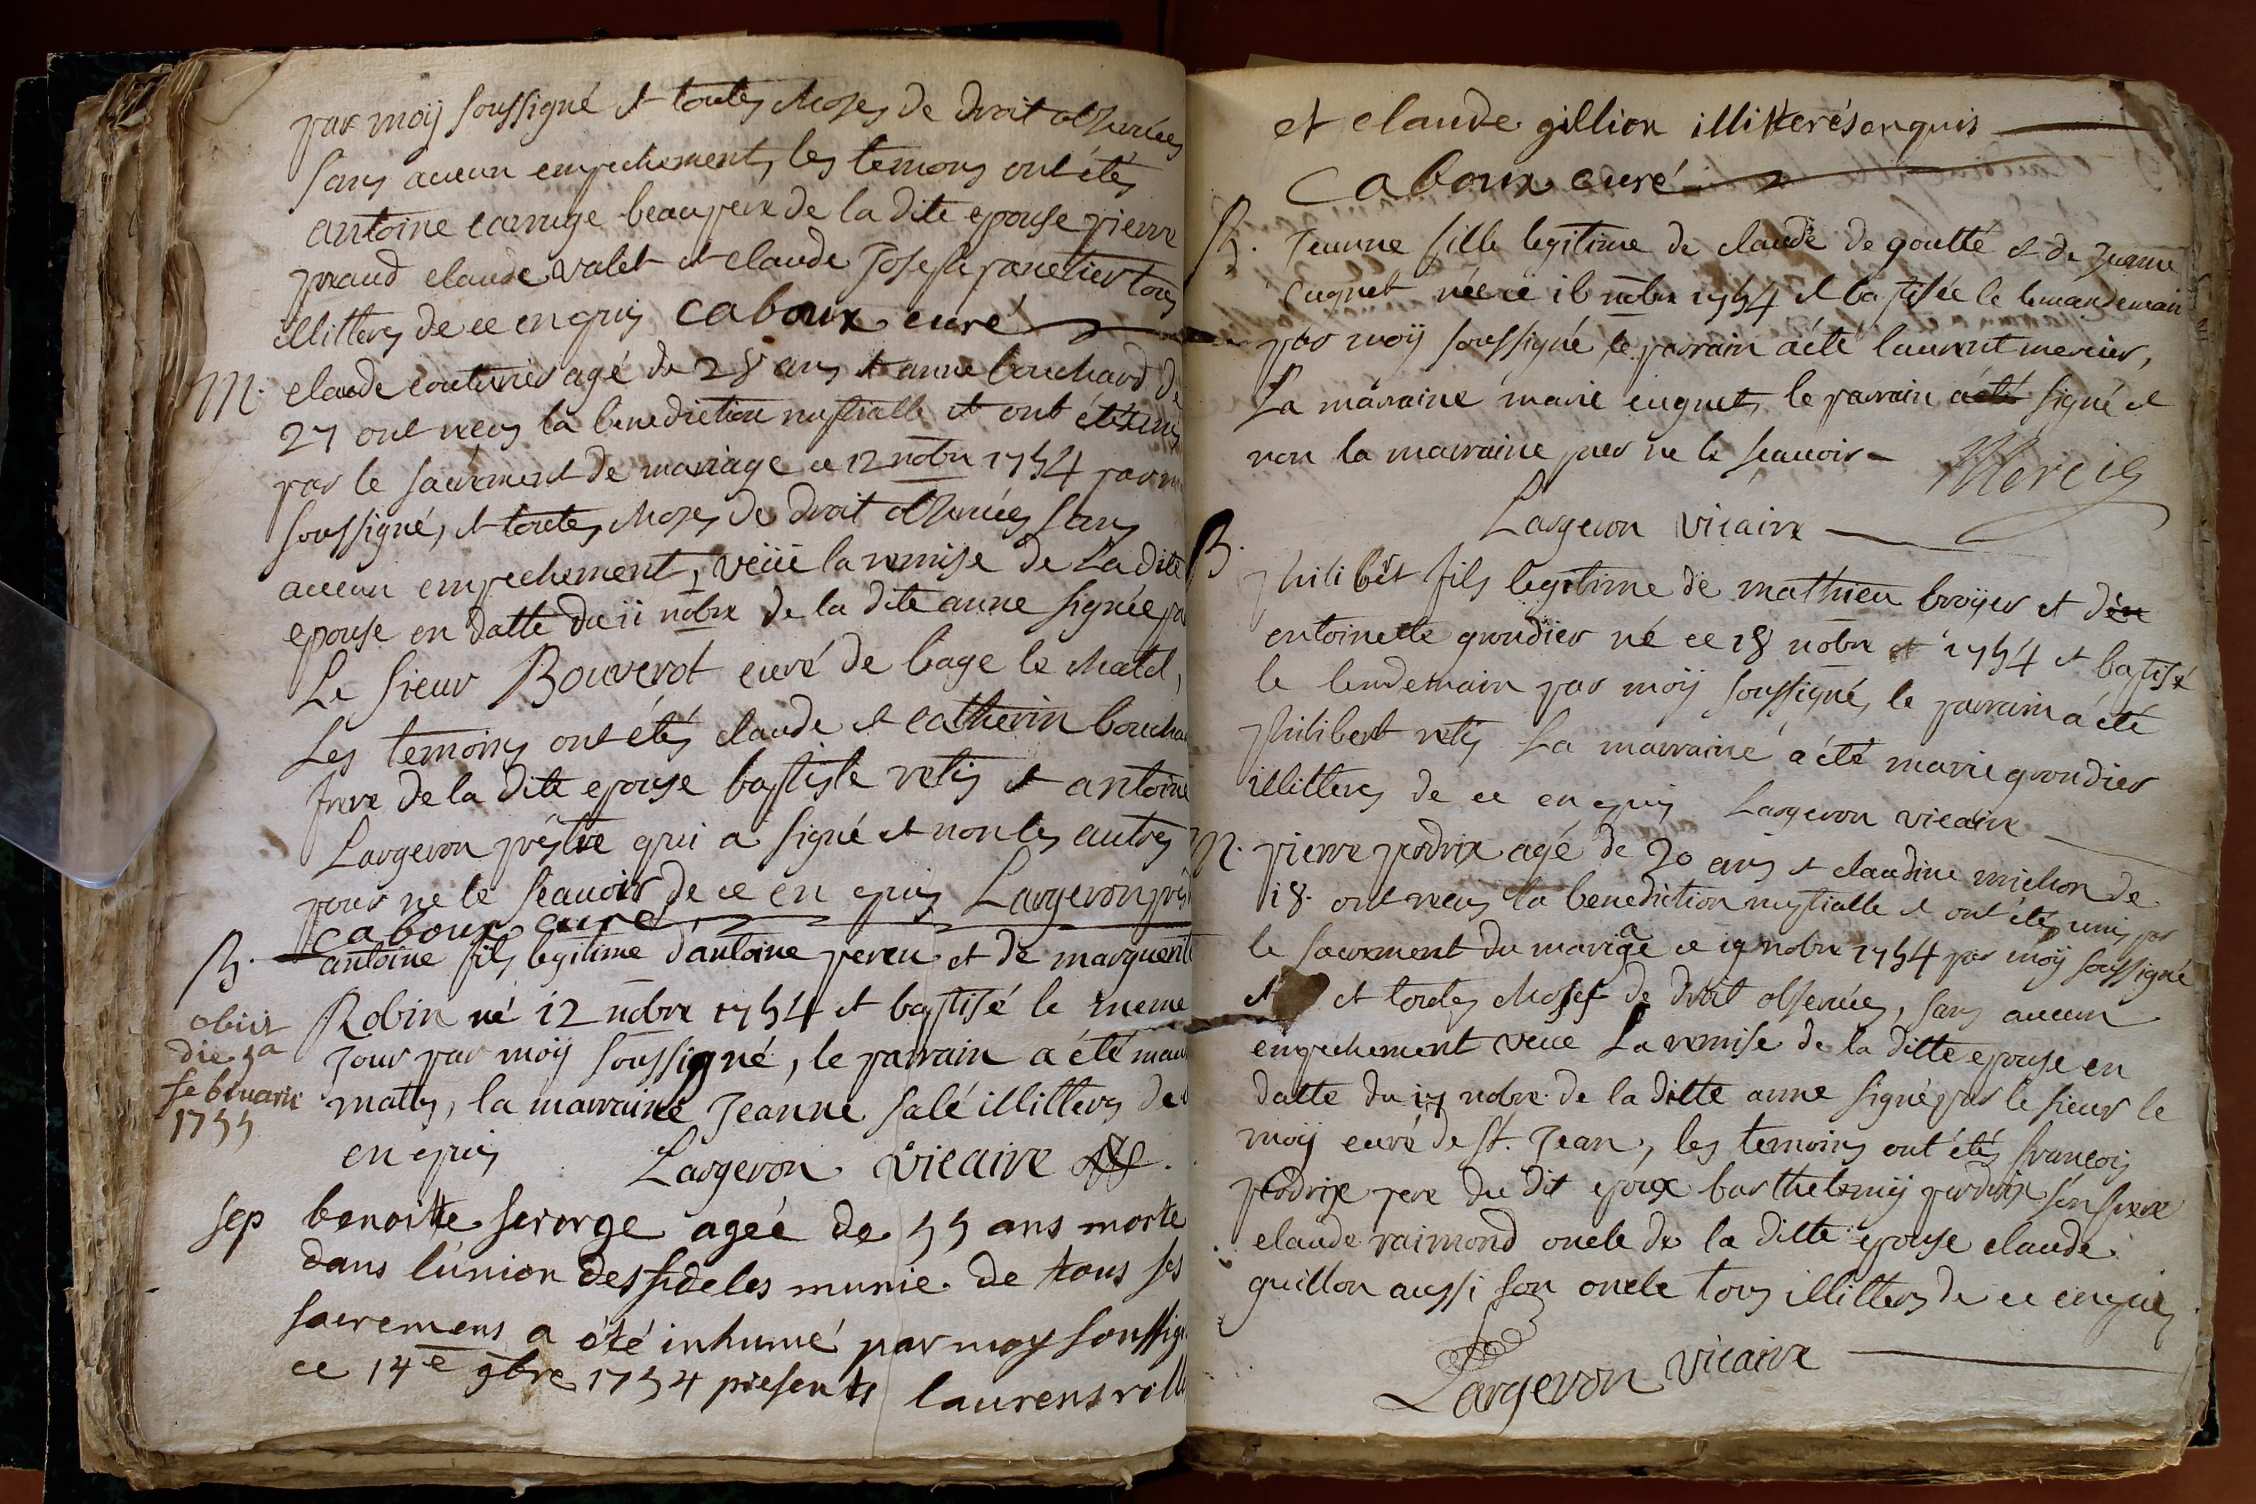 par moÿ soussigné et toutes choses de droit observées
sans aucun empechement, les temoins ont étés
antoine carruge beaupere de la dite epouse pierre
praud claude valet et claude Joseph panetier tous
illitterés de ce enquis caboux curé
M. claude couturier agé de 28 ans et anne bouchard de
27 ont receu la benediction nuptialle et ont étés unis
par le sacrement de mariage ce 12 nobre 1754 par m
soussigné, et toutes choses de droit observées sans
aucun empechement, veüe la remise de La dite
epouse en datte du 11 nobre de la dite anne signée pa
Le sieur Bouverot curé de bage le chatel,
Les temoins ont étés claude et catherin boucha
frere de la ditte epouse baptiste retis et antoine
Largeron prêstre qui a signé et non les autres
pour ne le sçauoir de ce en quis Largeron prê
caboux curé
B. antoine fils legitime d'antoine pereu et de marguerite
Robin né 12 nobre 1754 et baptisé le meme
Jour par moÿ soussigné, le parrain a été
mattes, la marraine Jeanne salé illitteres de
en quis Largeron vicaire
obiit
die 5a
februarii
1755
sep benoitte serorge ageé de 55 ans morte
dans l'union des fideles munie de tous ses
sacremens a été inhumé par moy soussig
ce 14e 9bre 1754 presents laurens
et claude gillion illitterés enquis
Caboux curé
B. Jeanne fille legitime de claude de goutté et de Jeanne
cugnet née ce 16 nobre 1754 et baptisée le lemandemain
par moÿ soussigné le parrain a été laurent mercier,
La marraine marie cugnet, le parrain a été signé et
non la marraine pour ne le sçauoir Mercier
Largeron vicaire
B. philibêt fils legitime de mathieu broÿer et d'en
entoinette grondier né ce 18 nobre et 1754 et baptisé
le lendemain par moÿ soussigné, le parrain a été
philibert retis La marraine a été marie grondier
illitteres de ce en quis Largeron vicaire
M. pierre perdrix agé de 20 ans et claudine michon de
18. ont receu la benediction nuptialle et ont étés unis par
le sacrement du mariage ce 19 nobre 1754 par moÿ soussigné
et et toutes choses de droit observées, sans aucun
empechement veue La remise de la ditte epouse en
datte du 17 nobre de la ditte anne signé par le sieur le
moÿ curé de St. Jean, les temoins ont étés françois
perdrix pere du dit epoux barthelemÿ perdrix son frere
claude raimond oncle de la ditte epouse claude
guillon aussi son oncle tous illitteres de ce enquis
Largeron vicaire